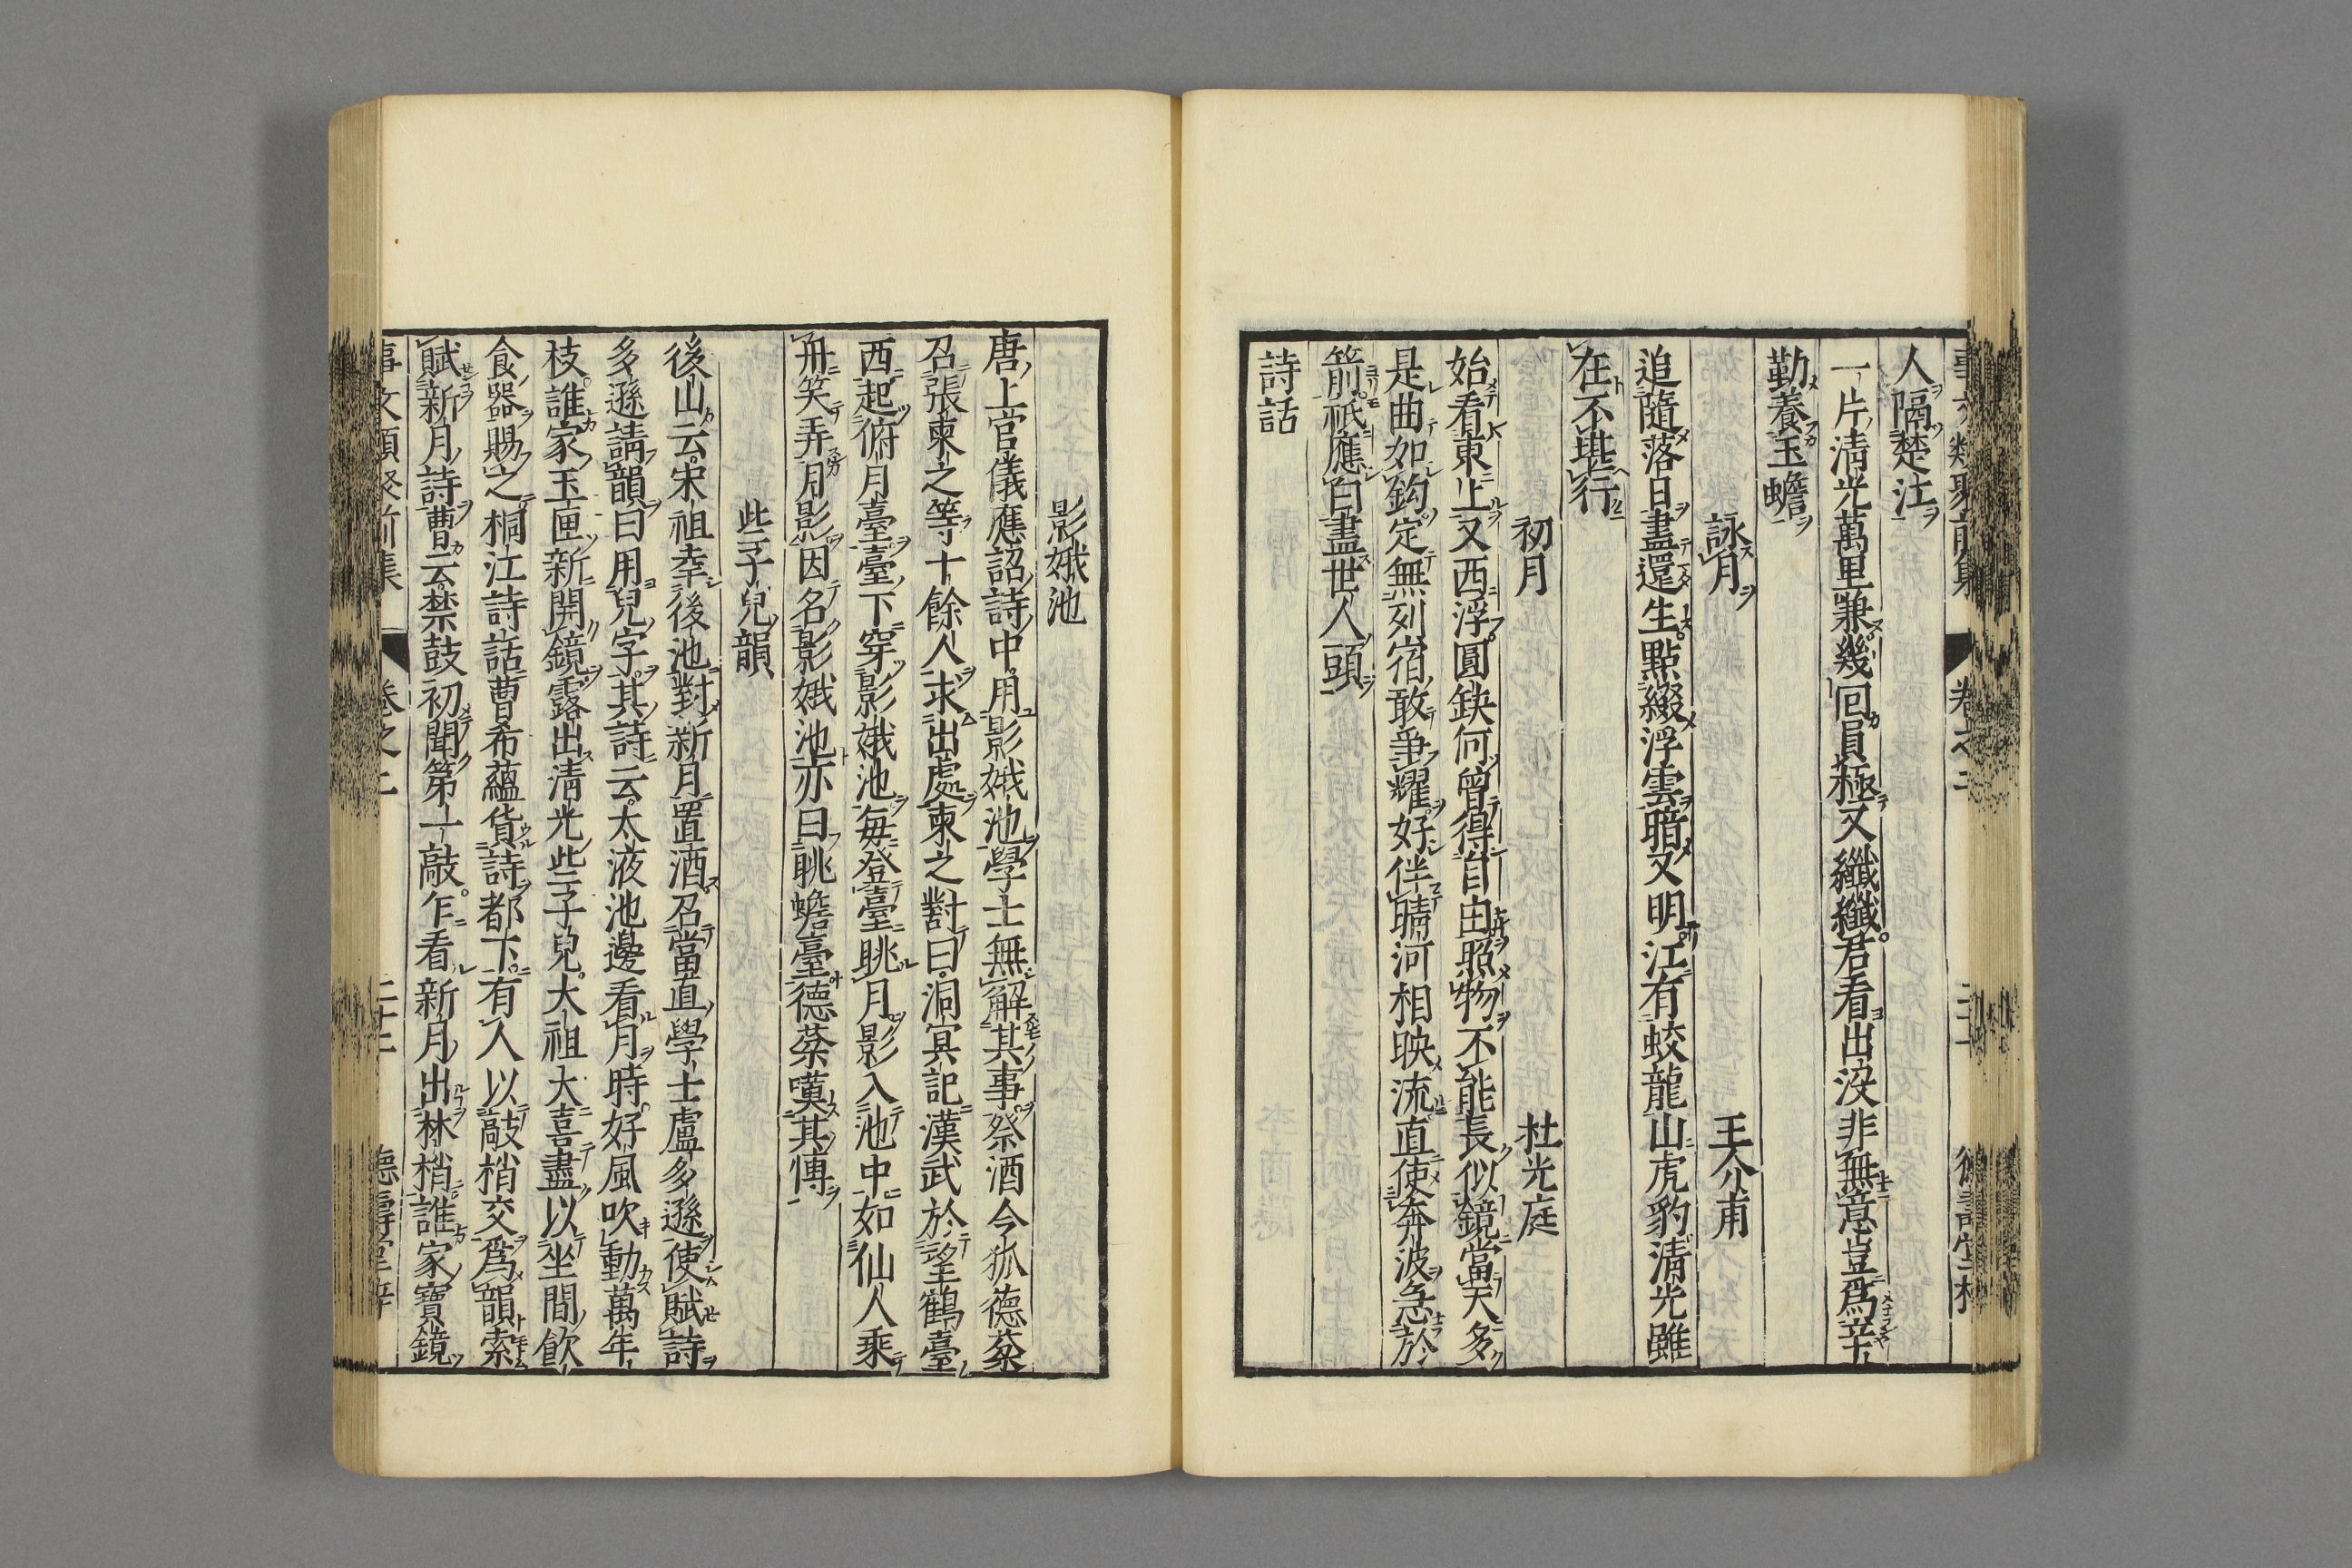 人隔楚江
一片清光萬里兼幾回員極又纖纖君看出沒非無意豈爲辛
勤養玉蟾
詠月 王介甫
追隨落日盡還生點綴浮雲暗又明江有蛟龍山虎豹清光雖
在不堪行
初月 杜光庭
始看東上又西浮圓缺何曾得自由照物不能長似鏡當天多
是曲如鈎定無列宿敢爭耀好伴晴河相映流直使奔波急於
箭祇應白盡世人頭
詩話
影娥池
唐上官儀應詔詩中用影娥池學士無解其事祭酒令狐德棻
召張柬之等十餘人求出處柬之對曰洞冥記漢武於望鶴臺
西起俯月臺臺下穿影娥池每登臺眺月影入池中如仙人乘
舟笑弄月影因名影娥池亦曰眺蟾臺德棻嘆其博
些子兒韻
後山云宋祖幸後池對新月置酒召當直學士盧多遜使賦詩
多遜請韻曰用兒字其詩云太液池邊看月時好風吹動萬年
枝誰家玉匣新開鏡露出清光些子兒太祖大喜盡以坐間飲
食器賜之桐江詩話曹希蘊貨詩都下有人以敲梢交爲韻索
賦新月詩曹云禁鼓初聞第一敲乍看新月出林梢誰家寶鏡